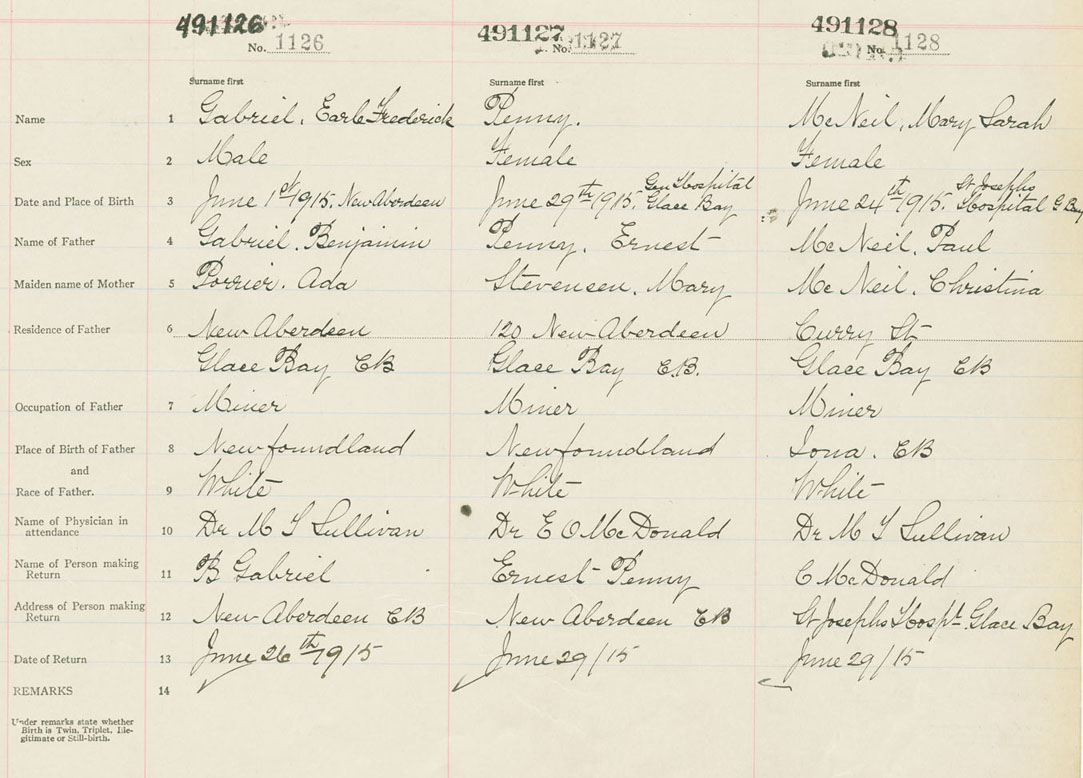 491126 491127 491128
No. 1126 No. 1127 No. 1128
Surname first Surname first Surname first
Name 1 Gabriel, Earle Frederick Penny. McNeil, Mary Sarah
Sex 2 Male Female Female
Gen Hospital St Josephs
Date and Place of Birth 3 June 1st 1915. New Aberdeen June 29th 1915. Glace Bay June 24th 1915. Hospital G Bay
Name of Father 4 Gabriel. Benjaimin Penny. Ernest McNeil. Paul
Maiden name of Mother 5 Porrier. Ada Stevensen, Mary McNeil. Christina
Residence of Father 6 New Aberdeen 120 New Aberdeen Curry St
Glace Bay CB Glace Bay C.B. Glace Bay CB
Occupation of Father 7 Miner Miner Miner
Place of Birth of Father 8 Newfoundland Newfoundland Iona. CB
and
Race of Father. 9 White White White
Name of Physician in
attendance 10 Dr M J Sullivan Dr E O McDonald Dr M J Sullivan
Name of Person making
Return 11 B Gabriel Ernest Penny C McDonald
Address of Person making
Return 12 New Aberdeen CB New Aberdeen CB St Josephs Hospt. Glace Bay
Date of Return 13 June 26th 1915 June 29/15 June 29/15
REMARKS 14
Under remarks state whether
Birth is Twin, Triplet, Ille-
gitimate or Still-birth.